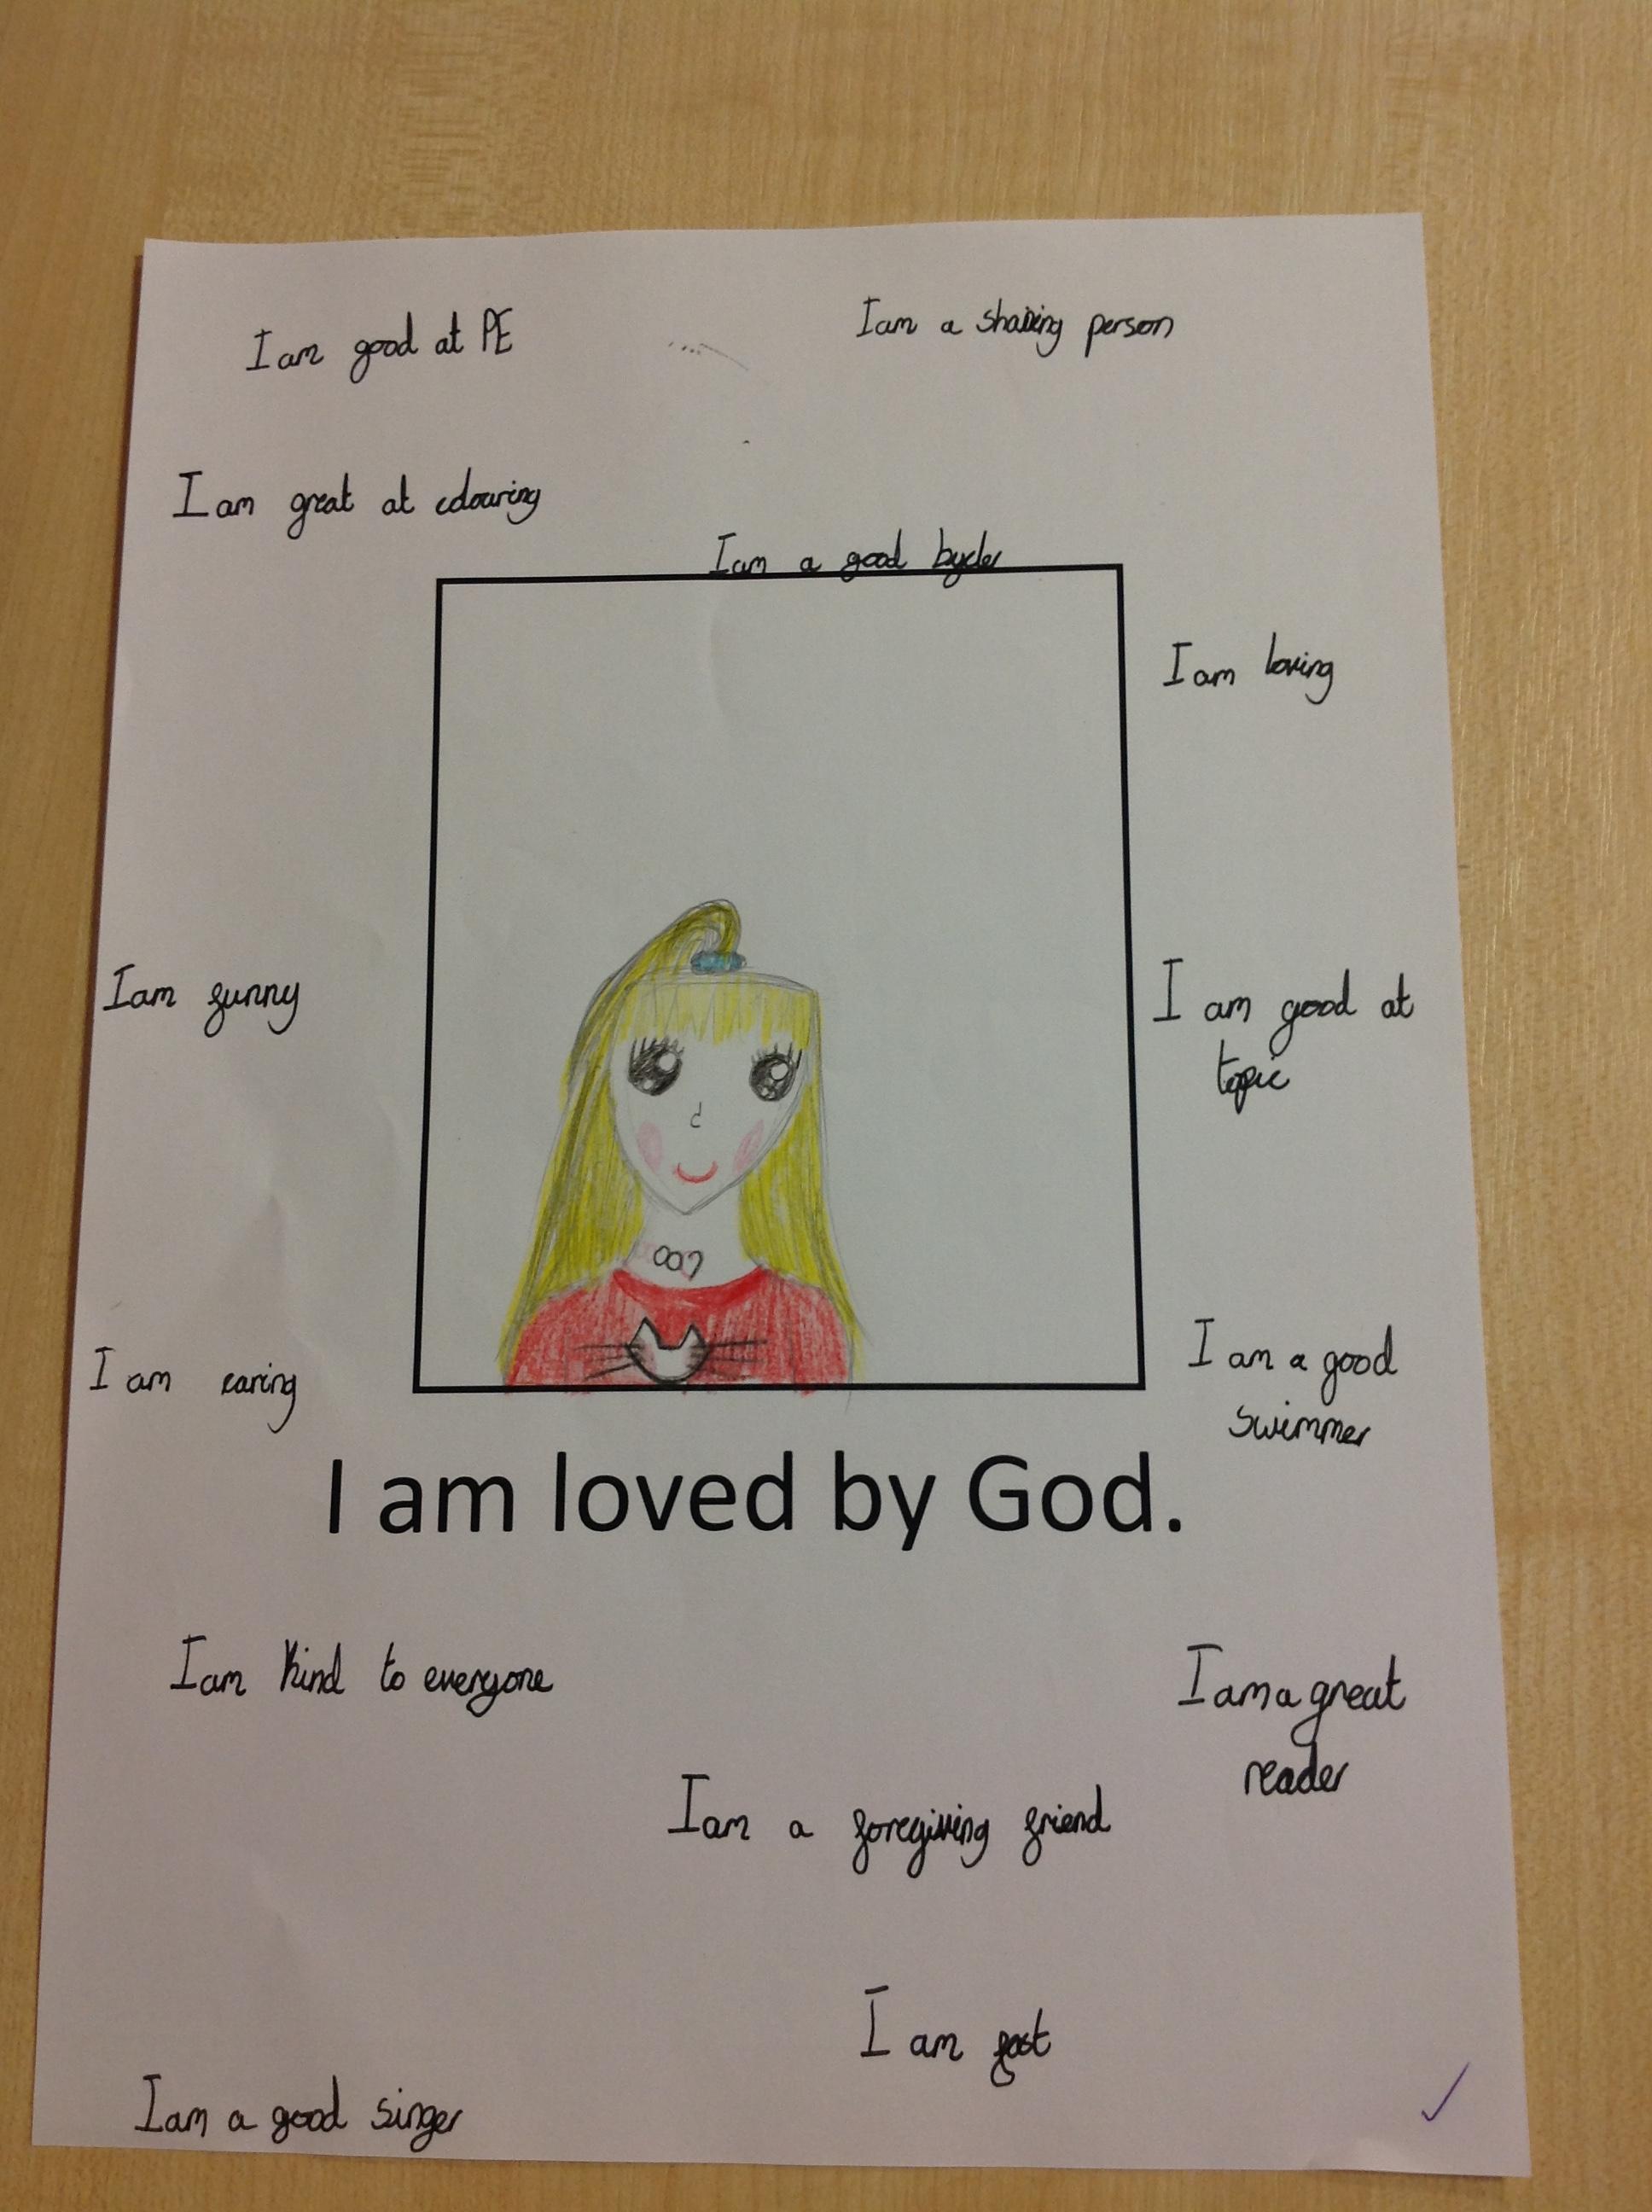 I am good at PE
I am a sharing person
I am great at colouring
I am a good bycler
I am loving
I am funny
I am good at
topic
I am caring
I am a good
swimmer
I am loved by God.
I am kind to everyone
I am a great
reader
I am a foregiving friend
I am fast
I am a good singer